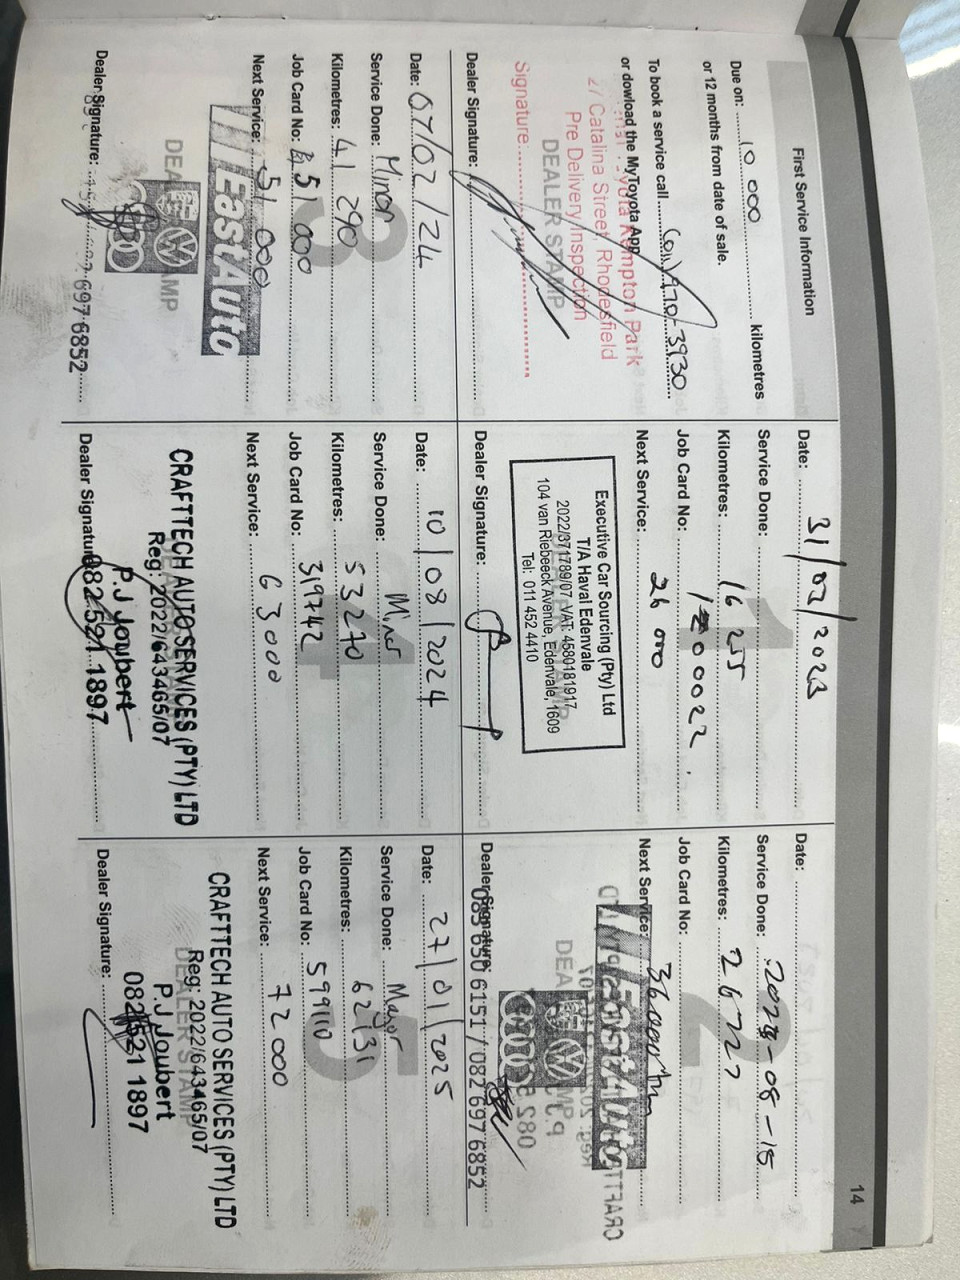 14
First Service Information
Due on: 10 000 kilometres
or 12 months from date of sale.
To book a service call (011) 970-3930
or dowload the MyToyota App
Kempton Park
27 Catalina Street, Rhodesfield
Pre Delivery Inspection
DEALER STAMP
Signature:
Dealer Signature:
1
Date: 31/02/2023
Service Done:
Kilometres: 16 255
Job Card No: 0022
Next Service: 26 000
Executive Car Sourcing (Pty) Ltd
T/A Haval Edenvale
2022/371789/07 VAT: 4580181917
104 van Riebeeck Avenue, Edenvale, 1609
Tel: 011 452 4410
Dealer Signature:
2
Date:
Service Done: 2023-08-15
Kilometres: 26727
Job Card No:
Next Service: 36000km
EastAuto
Dealer Signature:
083 650 6151 / 082 697 6852
3
Date: 07/02/24
Service Done: Minor
Kilometres: 41 290
Job Card No: 51 000
Next Service: 51 000
EastAuto
DEALER STAMP
Dealer Signature:
697 6852
4
Date: 10/08/2024
Service Done: Minor
Kilometres: 53270
Job Card No: 319742
Next Service: 63000
CRAFTTECH AUTO SERVICES (PTY) LTD
Reg: 2022/643465/07
P.J Joubert
082 521 1897
Dealer Signature:
5
Date: 27/01/2025
Service Done: Major
Kilometres: 62131
Job Card No: 599110
Next Service: 72000
CRAFTTECH AUTO SERVICES (PTY) LTD
Reg: 2022/643465/07
DEALER STAMP
P.J Joubert
082 521 1897
Dealer Signature: